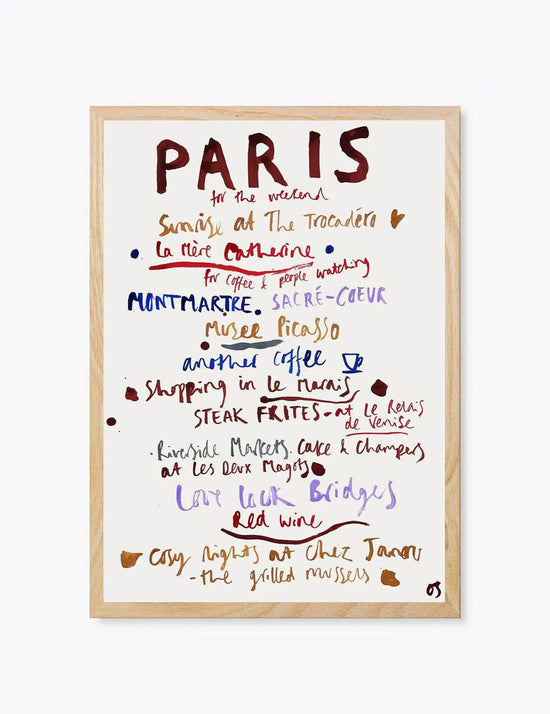 PARIS
for the weekend
Sunrise at The Trocadéro
La Mère Catherine
for coffee & people watching
MONTMARTRE. SACRÉ-COEUR
Musee Picasso
another coffee
Shopping in Le Marais
STEAK FRITES - at Le Relais
de Venise
Riverside Markets. Cake & Champers
at Les Deux Magots
Love Lock Bridges
Red wine
Cosy nights at Chez Janou
- the grilled mussels
OS